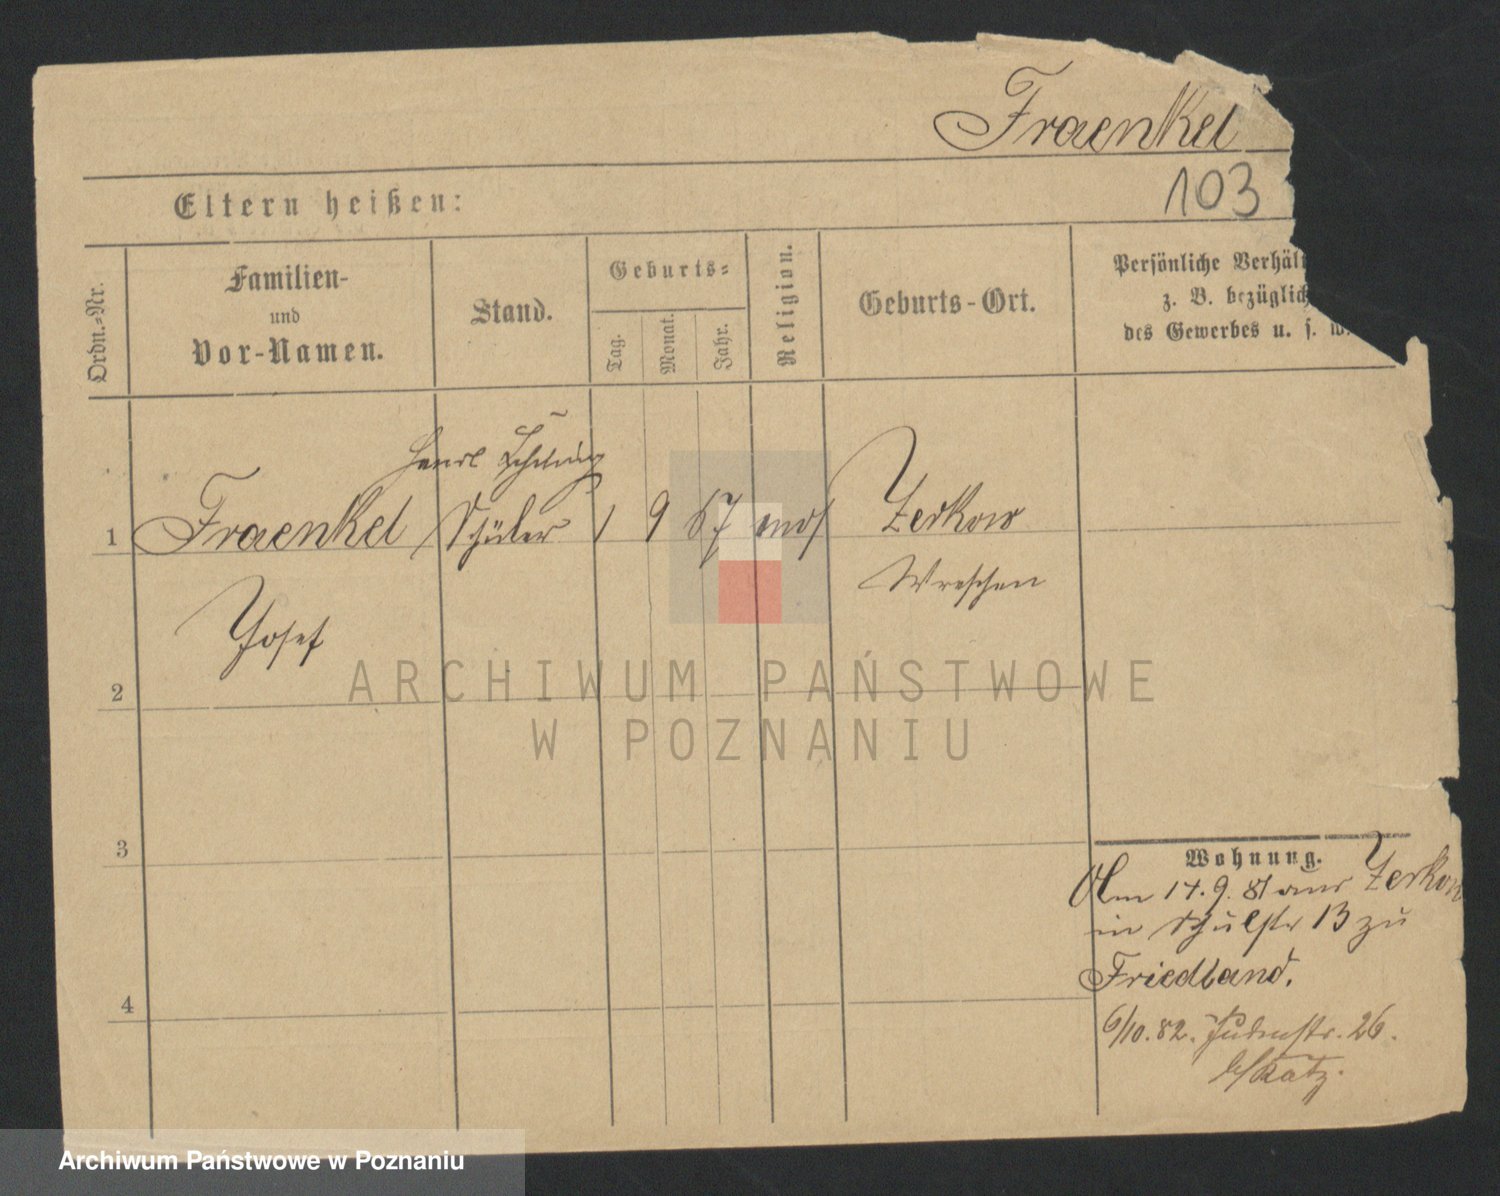 Fraenkel
103
Eltern heißen:
Ordn.-Nr.
Familien-
und
Vor-Namen.
Stand.
Geburts-
Tag.
Monat.
Jahr.
Religion.
Geburts-Ort.
Persönliche Verhäl
z. B. bezüglich
des Gewerbes u. s. w.
1
Fraenkel
Schüler
1 9 67 mos
Zerkow
Wreschen
Josef
2
3
4
Wohnung.
Am 14.9.81 aus Zerkow
in Schulstr 13 zu
Friedland.
6/10.82. Judenstr. 26.
b/ Katz.
ARCHIWUM PAŃSTWOWE
W POZNANIU
Archiwum Państwowe w Poznaniu